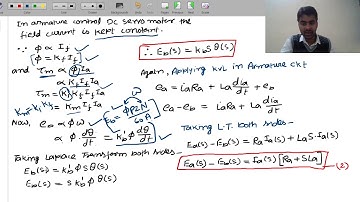 In armature control DC servo motor the
field current is kept constant.
∴ φ ∝ If
φ = Kf If
and τm ∝ φ Ia
∝ Kf If Ia
τm = K1 Kf If Ia
Now, eb ∝ φ ω
eb ∝ φ dθ/dt = Kb' φ dθ/dt
φ P Z N / 60 A
Taking Laplace Transform both sides -
Eb(s) = Kb' φ S θ(s)
Eb(s) = S Kb' φ θ(s)
∴ Eb(s) = Kb S θ(s)
Again, Applying KVL in Armature ckt
ea = ia Ra + La dia/dt + eb
ea - eb = ia Ra + La dia/dt
Taking L.T. both sides -
Ea(s) - Eb(s) = Ra Ia(s) + La S. Ia(s)
Ea(s) - Eb(s) = Ia(s) [Ra + S La]
(2)